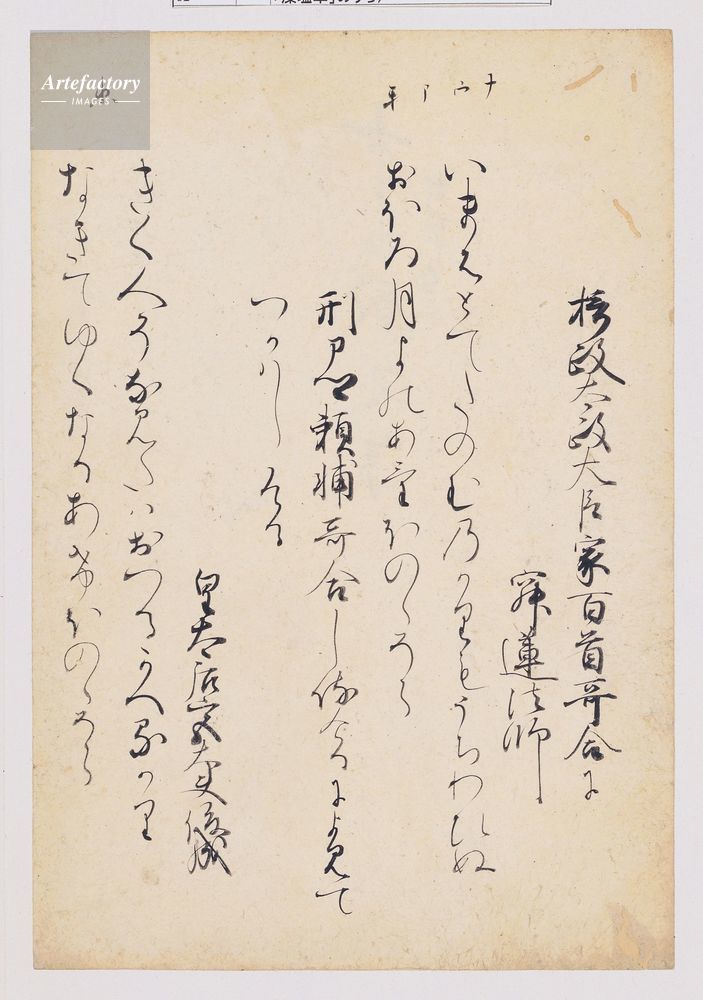 摂政太政大臣家百首哥合に
寂蓮法師
いまはとてたのむのかりもうちわひぬ
おほろ月よのあけほのゝそら
刑部卿頼輔哥合し侍けるによみて
つかはしける
皇太后宮大夫俊成
きく人そなみたはおつるかへるかり
なきてゆくなるあけほのゝそら
Artefactory
IMAGES